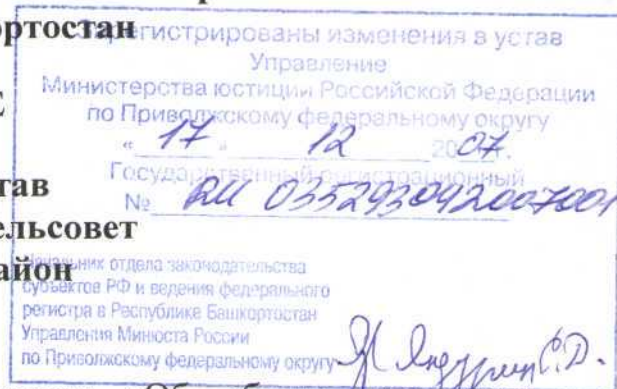 ортостан
Зарегистрированы изменения в устав
Управление
Министерства юстиции Российской Федерации
по Приволжскому федеральному округу
« 17 » 12 2007г.
тав
Государственный регистрационный
ельсовет
№ RU 035293092007001
айон
Начальник отдела законодательства
субъектов РФ и ведения федерального
регистра в Республике Башкортостан
Управления Минюста России
по Приволжскому федеральному округу